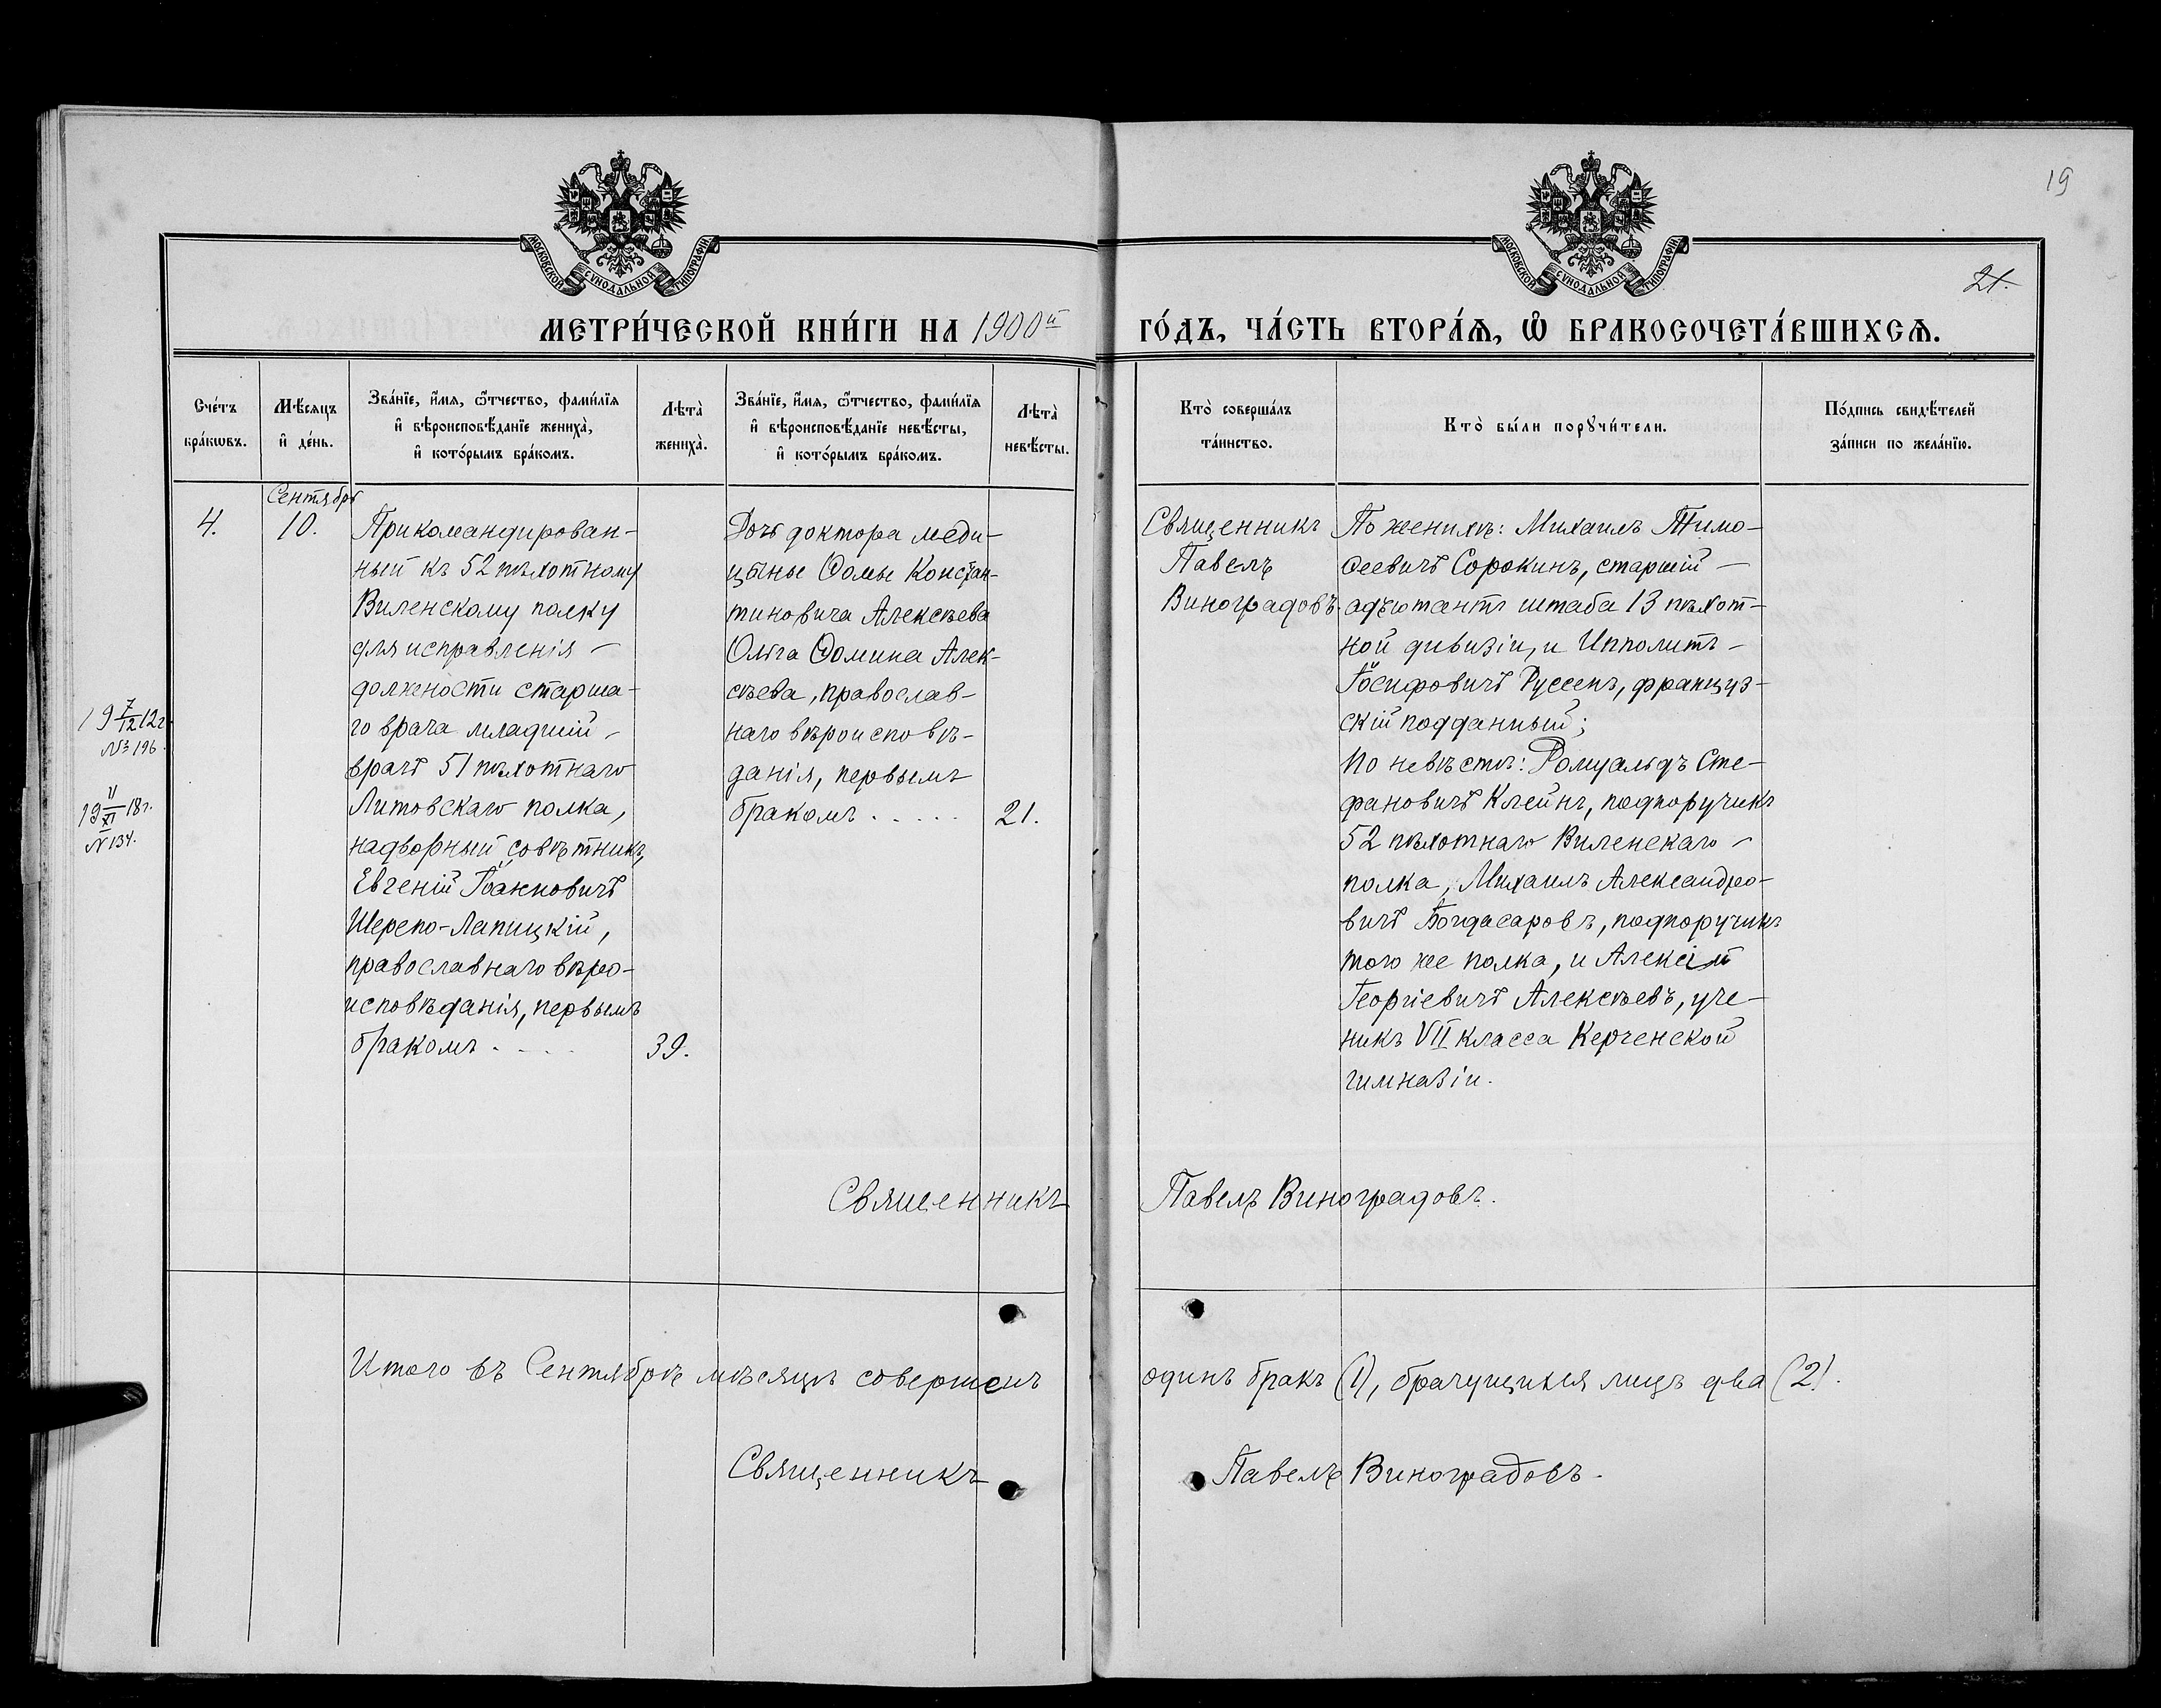 19
21.
МОСКОВСКОЙ СУНОДАЛЬНОЙ ТИПОГРАФІИ
МОСКОВСКОЙ СУНОДАЛЬНОЙ ТИПОГРАФІИ
МЕТРИ́ЧЕСКОЙ КНИ́ГИ НА 1900й
ГО́ДЪ, ЧА́СТЬ ВТОРА́Ѧ, Ѡ҆ БРАКОСОЧЕТА́ВШИХСѦ.
Сче́тъ
бра́кѡвъ.
Мѣ́сѧцъ
и҆ де́нь.
Зва́нїе, и҆́мѧ, ѻ҆́тчество, фами́лїѧ
и҆ вѣроисповѣ́данїе жениха̀,
и҆ кото́рымъ бра́комъ.
Лѣта̀
жениха̀.
Зва́нїе, и҆́мѧ, ѻ҆́тчество, фами́лїѧ
и҆ вѣроисповѣ́данїе невѣ́сты,
и҆ кото́рымъ бра́комъ.
Лѣта̀
невѣ́сты.
Кто̀ соверша́лъ
та́инство.
Кто̀ бы́ли порꙋчи́тели.
По́дпись свидѣ́телей
за́писи по жела́нїю.
19 7/12 12г.
№ 196.
19 11/XI 18г.
№ 134.
4.
Сентябрь
10.
Прикомандирован-
ный къ 52 пѣхотному
Виленскому полку
для исправленія -
должности старша-
го врача младшій -
врачъ 51 пѣхотнаго
Литовскаго полка,
надворный совѣтникъ,
Евгеній Іоанновичъ
Шерепо-Лапицкій,
православнаго вѣро-
исповѣданія, первымъ
бракомъ . . . .
39.
Дочь доктора меди-
цыны Ѳомы Констан-
тиновича Алексѣева
Ольга Ѳомина Алек-
сѣева, православ-
наго вѣроисповѣ-
данія, первымъ
бракомъ . . . . .
21.
Священникъ
Павелъ
Виноградовъ.
По женихѣ: Михаилъ Тимо-
ѳеевичъ Сорокинъ, старшій -
адъютантъ штаба 13 пѣхот-
ной дивизіи, и Ипполитъ -
Іосифовичъ Руссенъ, француз-
скій подданный;
По невѣстѣ: Ромуальдъ Сте-
фановичъ Клейнъ, подпоручикъ
52 пѣхотнаго Виленскаго -
полка, Михаилъ Александро-
вичъ Богдасаровъ, подпоручикъ
того же полка, и Алексій
Георгіевичъ Алексѣевъ, уче-
никъ VII класса Керченской
гимназіи.
Священникъ Павелъ Виноградовъ.
Итого въ Сентябрѣ мѣсяцѣ совершенъ одинъ бракъ (1), брачущихся лицъ два (2).
Священникъ Павелъ Виноградовъ.